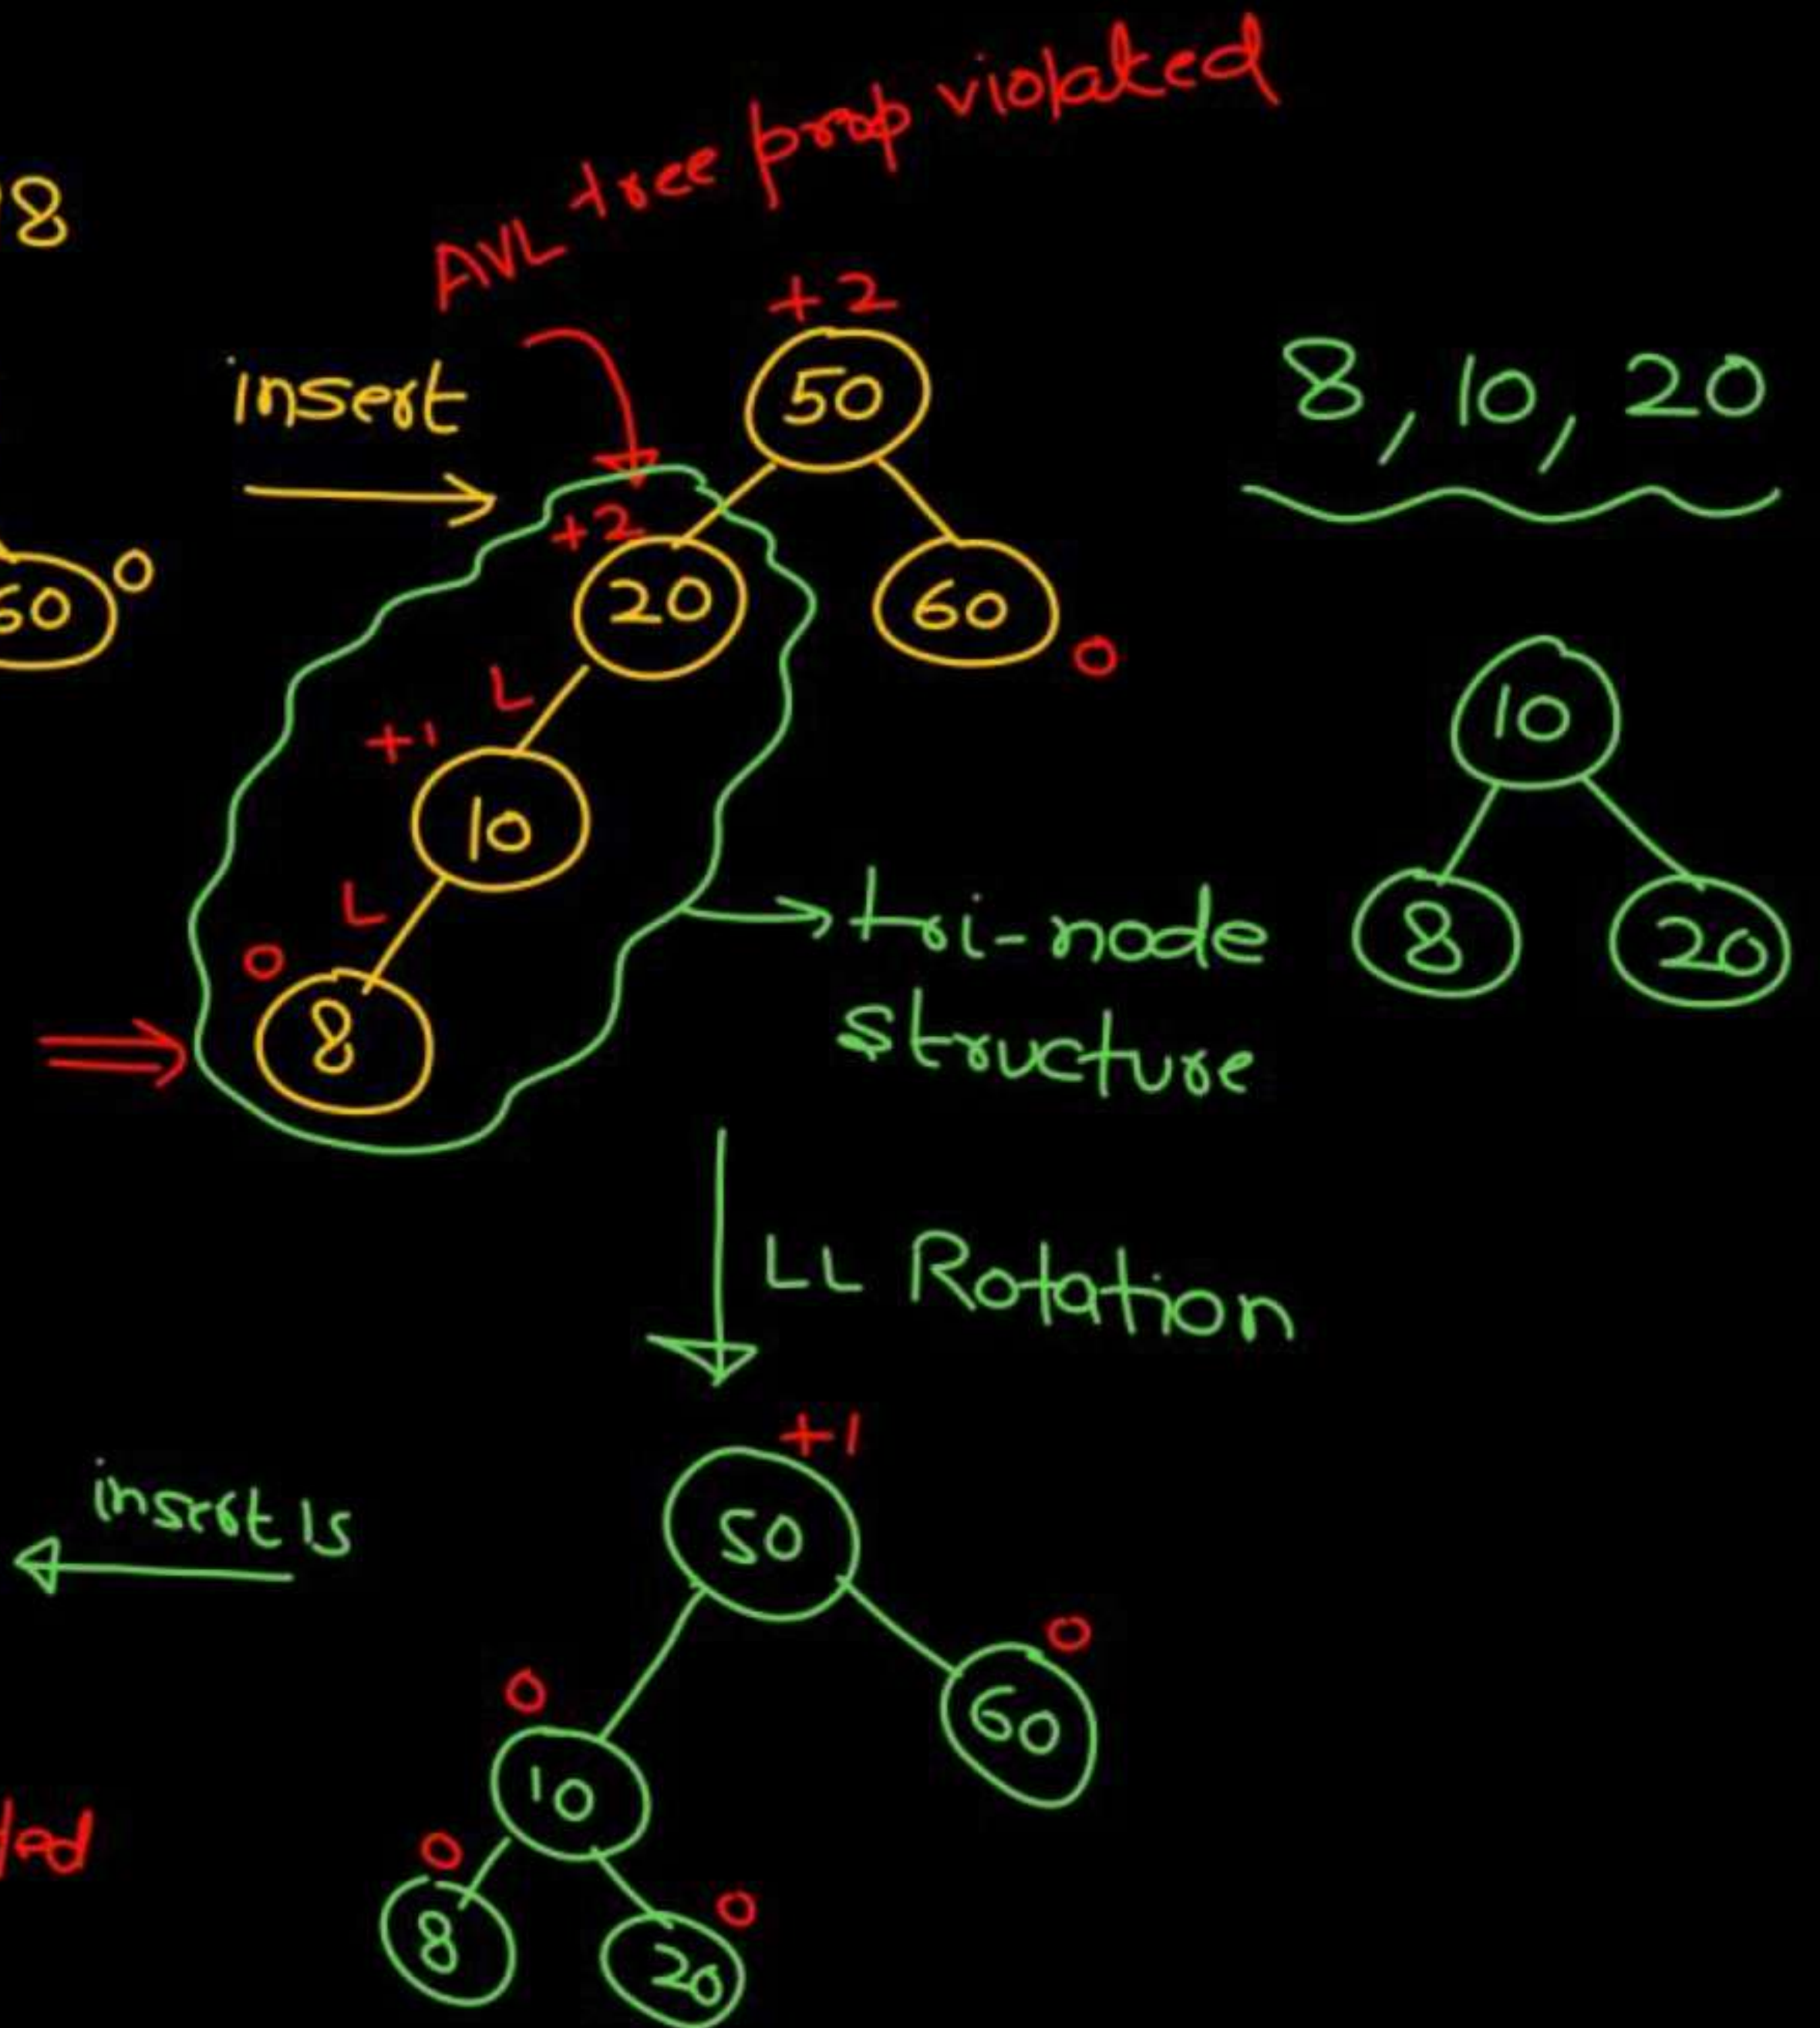 AVL tree prop violated
8
+2
50
insert
8, 10, 20
+2
20
60
0
60
0
L
+1
10
10
L
0
8
tri-node
structure
8
20
LL Rotation
+1
50
insert 15
0
60
0
10
0
8
0
20